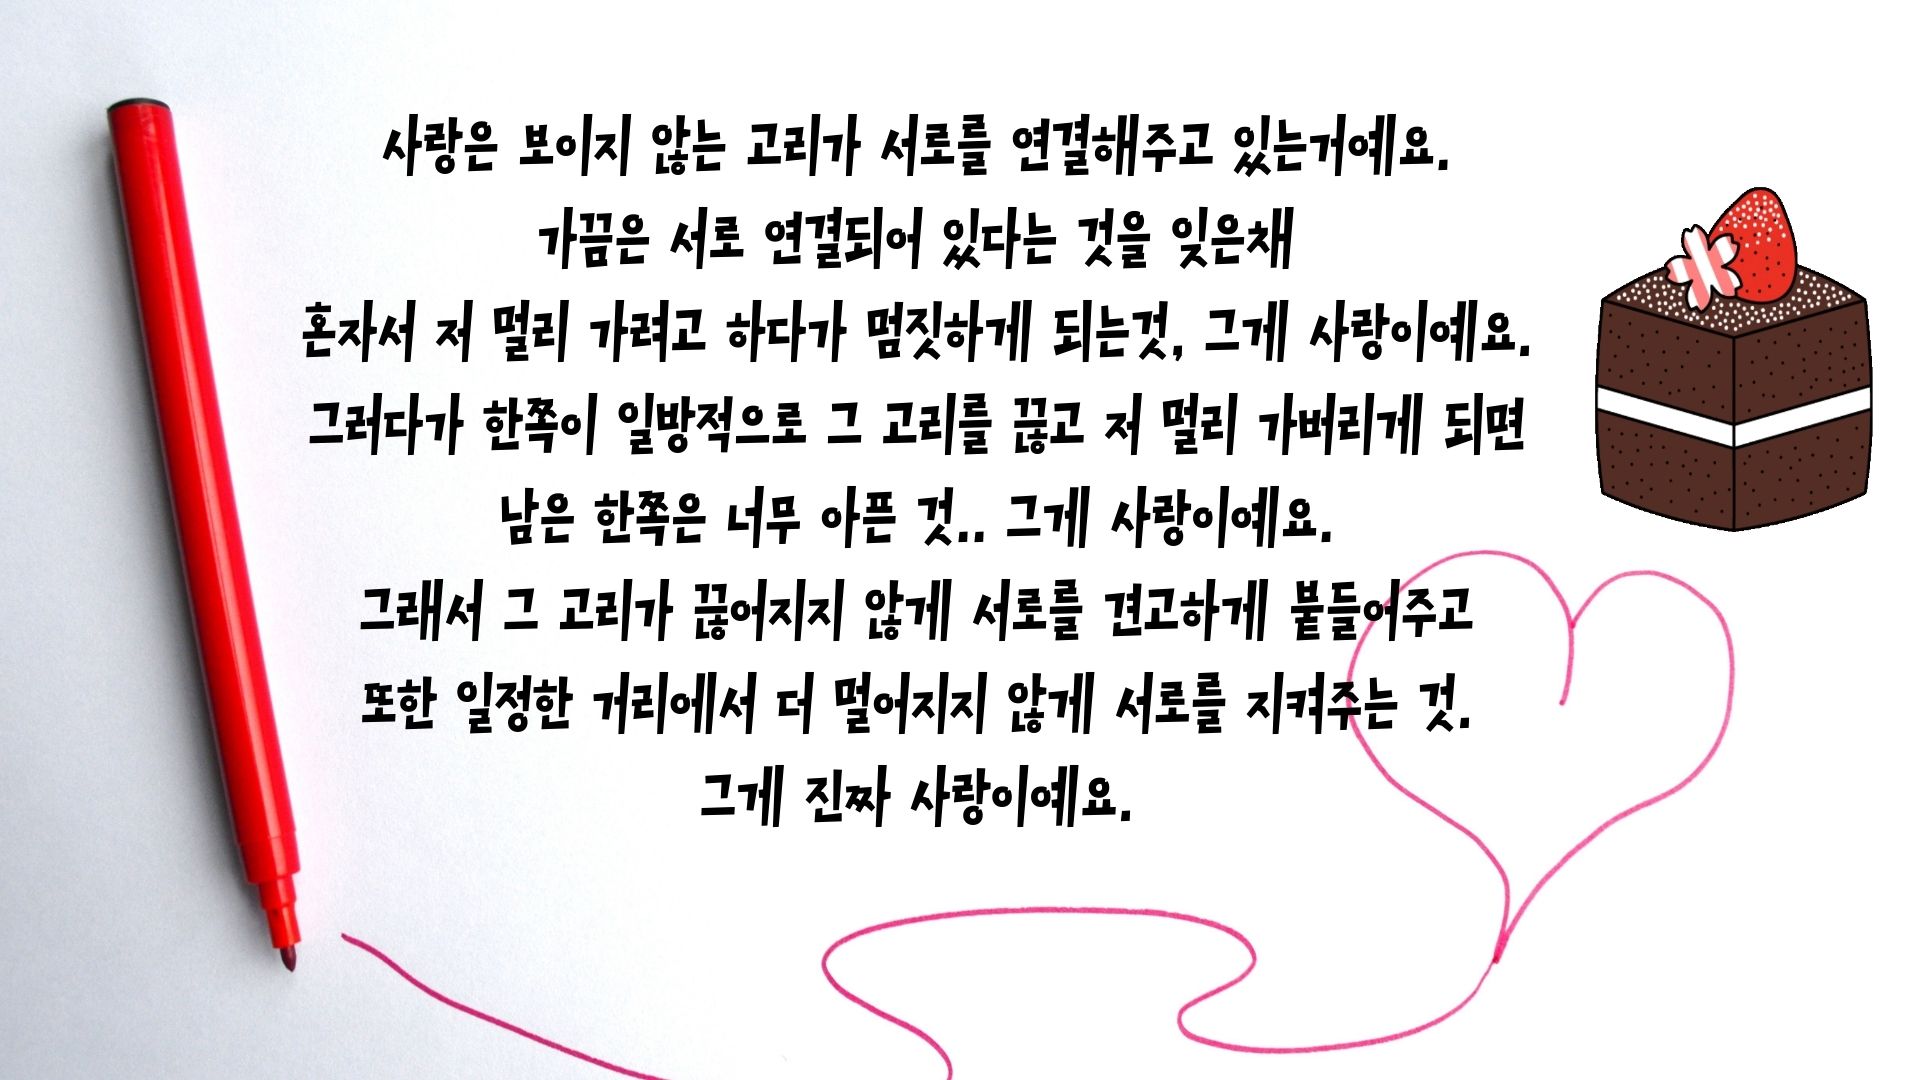 사랑은 보이지 않는 고리가 서로를 연결해주고 있는거예요.
가끔은 서로 연결되어 있다는 것을 잊은채
혼자서 저 멀리 가려고 하다가 멈짓하게 되는것, 그게 사랑이예요.
그러다가 한쪽이 일방적으로 그 고리를 끊고 저 멀리 가버리게 되면
남은 한쪽은 너무 아픈 것.. 그게 사랑이예요.
그래서 그 고리가 끊어지지 않게 서로를 견고하게 붙들어주고
또한 일정한 거리에서 더 멀어지지 않게 서로를 지켜주는 것.
그게 진짜 사랑이예요.